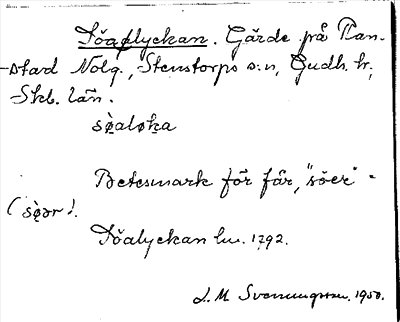 Söaplyckan. Gärde på Ran-
stad Nolg., Stenstorps s:n, Gudh. hr,
Skb. län.
sø̀aløka
Betesmark för får, "söer" -
(sø̀ər).
Söalyckan hu. 1792.
L. M. Svenungsson. 1950.